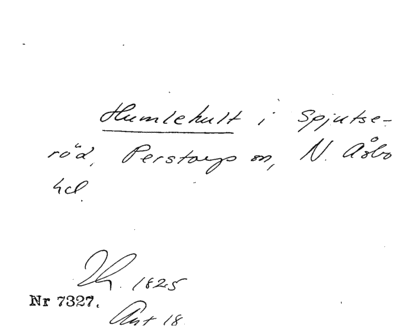 Humlehult i Spjutse-
röd, Perstorps sn, N. Åsbo
hd.
1825
Nr 7327.
Ant 18